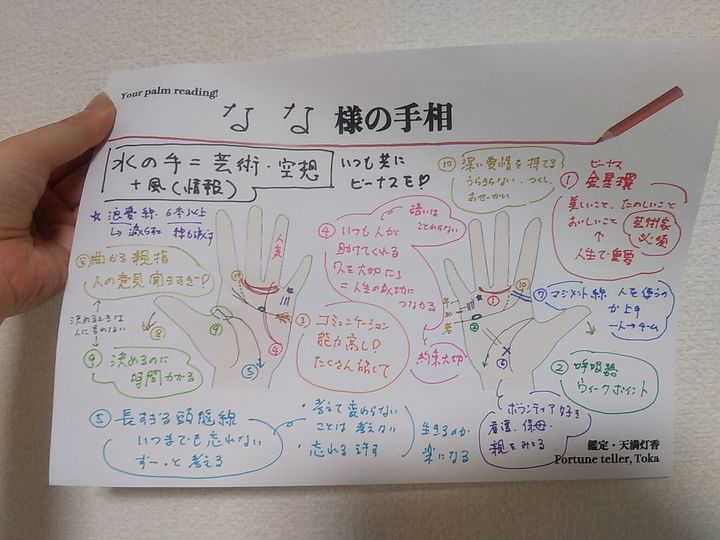 Your palm reading!
なな 様の手相
水の手=芸術・空想
+風(情報)
いつも共に
ビーナスを♡
★浪費線 6本以上
↳減らすと 持ち減す
⑧曲がる親指
人の意見聞きすぎ♡
決めるときは
人に言わない
⑨決めるのに
時間かかる
⑤長すぎる頭脳線
いつまでも忘れない
ずーっと考える
・考えて変わらない
ことは考えない
・忘れる許す
生きるのが
楽になる
人気
⑩
⑨
⑧
⑤
④
④いつも人が
助けてくれる
人を大切に
=人生の成功に
つながる
誘いは
ことわらない
約束大切
③コミュニケーション
能力高し♡
たくさん話して
⑩深い愛情を持てる
うらぎらない・つくし
おせっかい
ビーナス
①金星環
美しいこと、たのしいこと
おいしいこと
芸術家
必須
↑
人生で重要
①
⑩
★
②
⑥
⑦マジメント線 人を使うの
が上手
一人→チーム
②呼吸器
ウィークポイント
ボランティア好き
看護・保母・
親をみとる
鑑定・天満灯香
Fortune teller, Toka